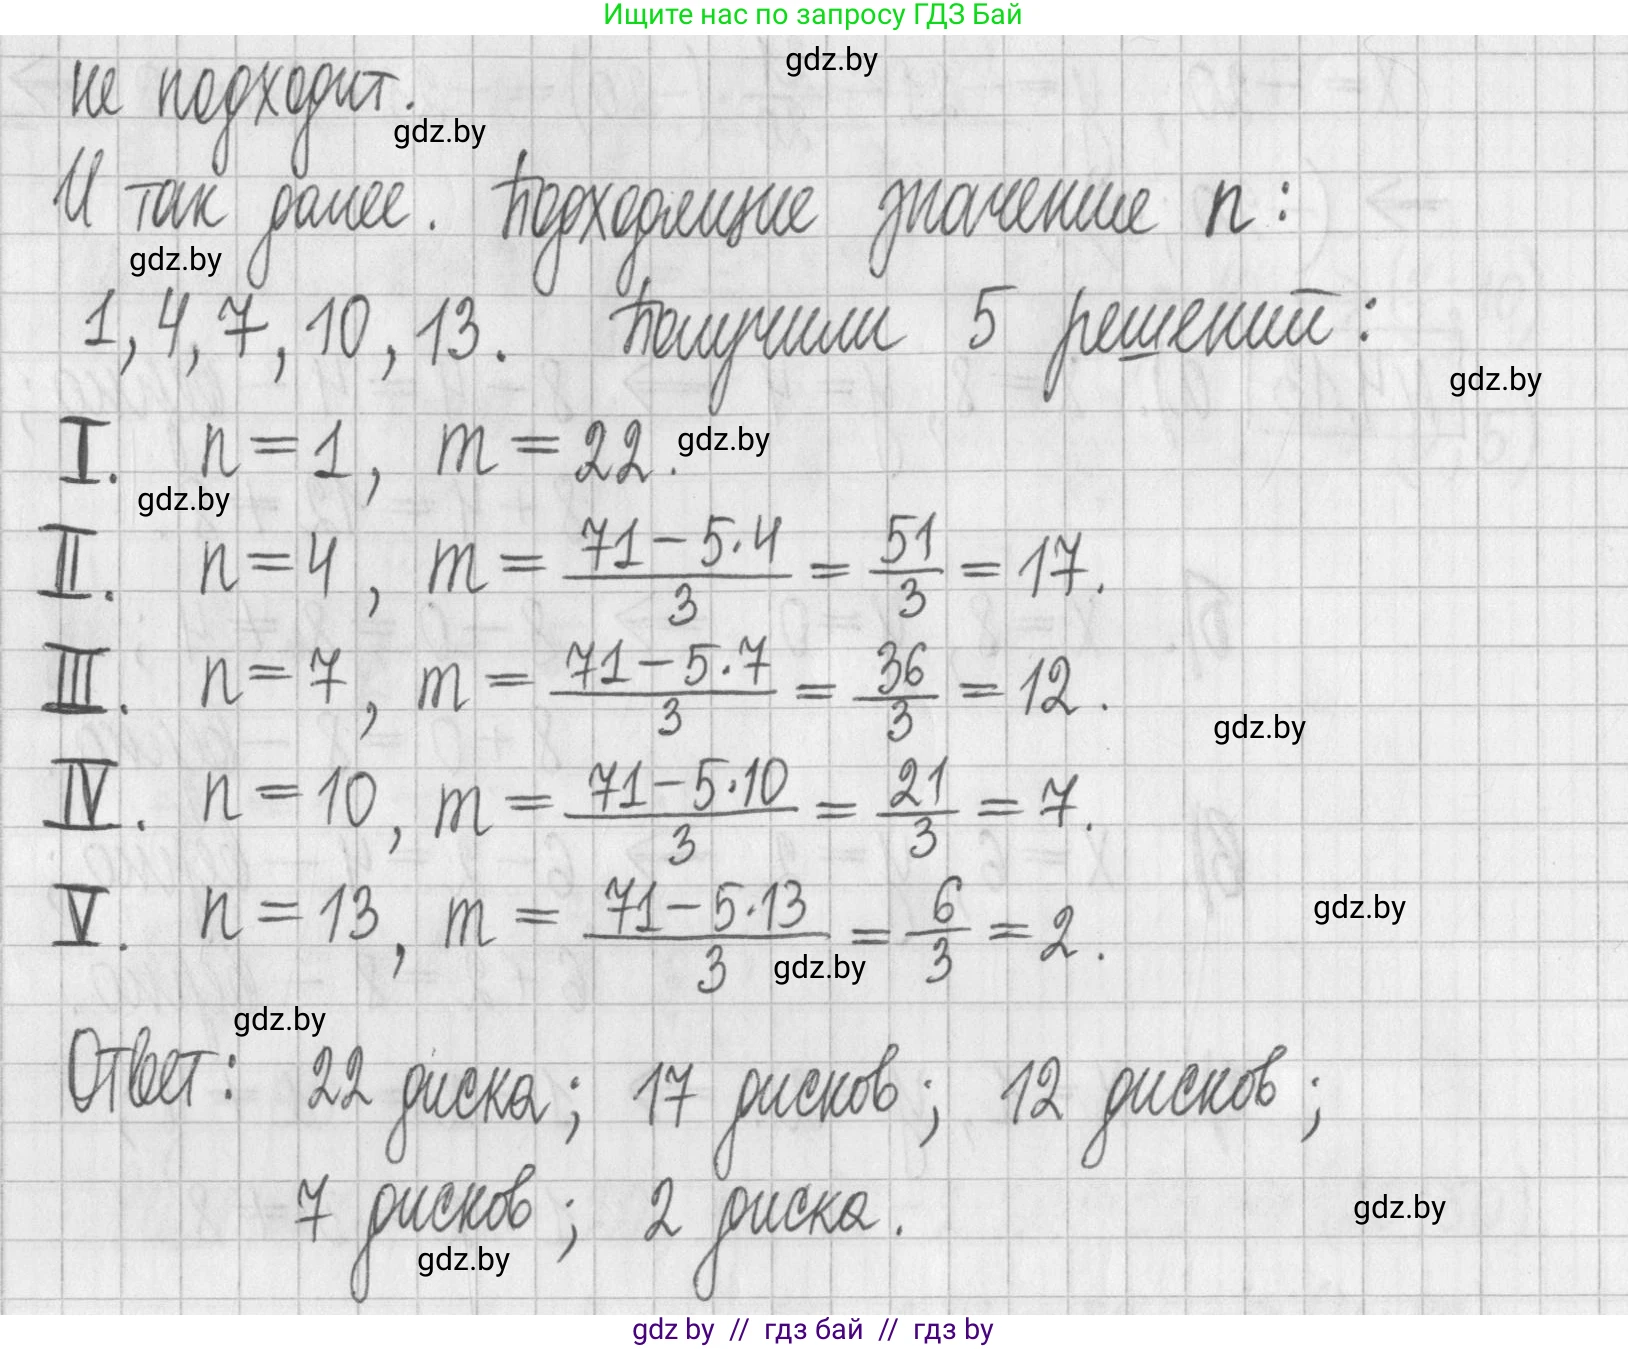 Ищите нас по запросу ГДЗ Бай
gdz.by
не подходит.
gdz.by
И так далее. Подходящие значение n:
gdz.by
1, 4, 7, 10, 13. Получили 5 решений:
gdz.by
I. n = 1, m = 22.
gdz.by
gdz.by
II. n = 4, m = 71 - 5·4 / 3 = 51 / 3 = 17.
III. n = 7, m = 71 - 5·7 / 3 = 36 / 3 = 12.
gdz.by
IV. n = 10, m = 71 - 5·10 / 3 = 21 / 3 = 7.
V. n = 13, m = 71 - 5·13 / 3 = 6 / 3 = 2.
gdz.by
gdz.by
gdz.by
Ответ: 22 диска; 17 дисков; 12 дисков;
7 дисков; 2 диска.
gdz.by
gdz.by
gdz by // гдз бай // гдз by